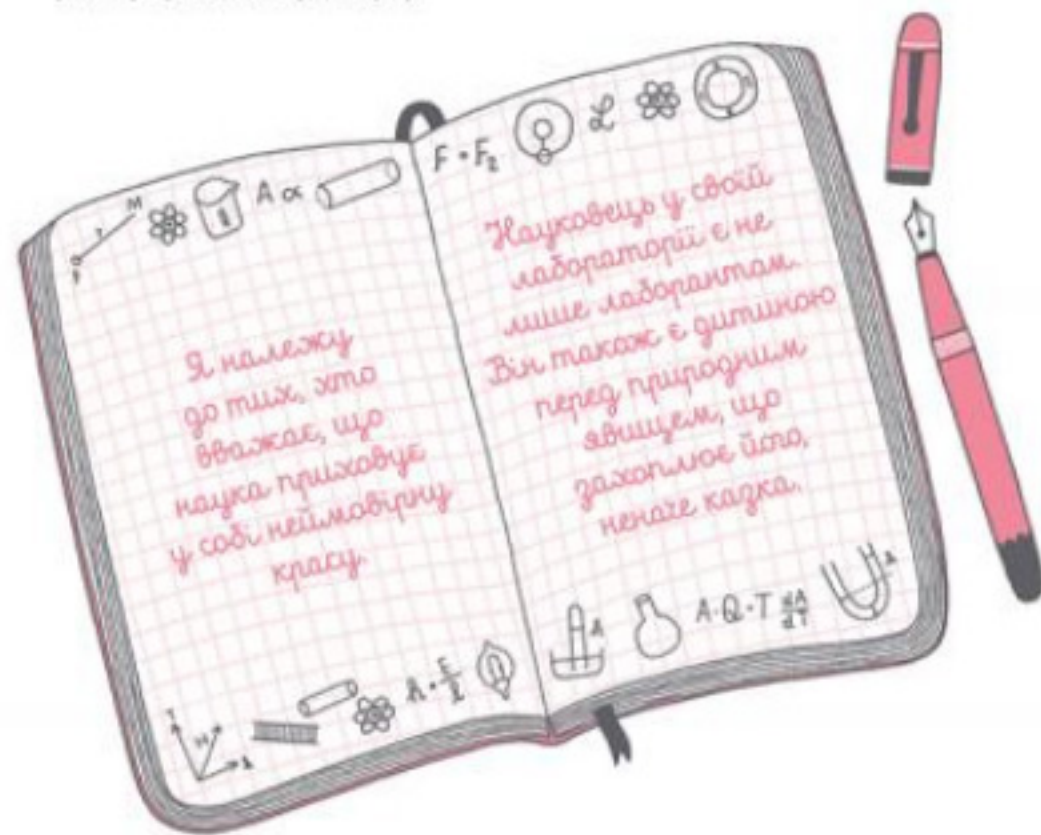 Я належу
до тих, хто
вважає, що
наука приховує
у собі неймовірну
красу.
F · F₂
Науковець у своїй
лабораторії є не
лише лаборантом.
Він також є дитиною
перед природним
явищем, що
захоплює його,
неначе казка.
A · Q · T dA/dT